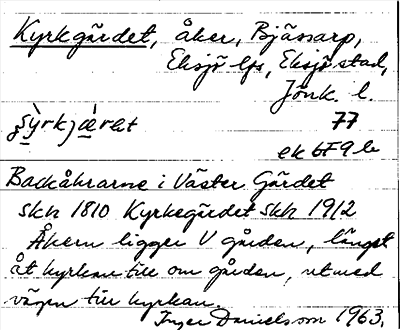 Kyrkgärdet, åker, Bjässarp,
Eksjö lfs, Eksjö stad,
Jönk. l.
77
ek 6F9b
Backåkrarne i Väster Gärdet
skh 1810 Kyrkegärdet skh 1912
Åkern ligger V gården, längst
åt kyrkan till om gården, utmed
vägen till kyrkan.
Inger Danielsson 1963.